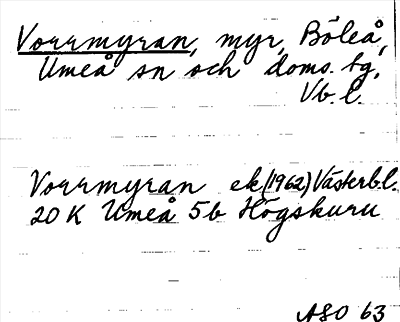 Vorrmyran, myr, Böleå,
Umeå sn och doms. tg,
Vb. l.
Vorrmyran ek (1962) Västerb.l.
20 K Umeå 5b Högskuru
ASO 63